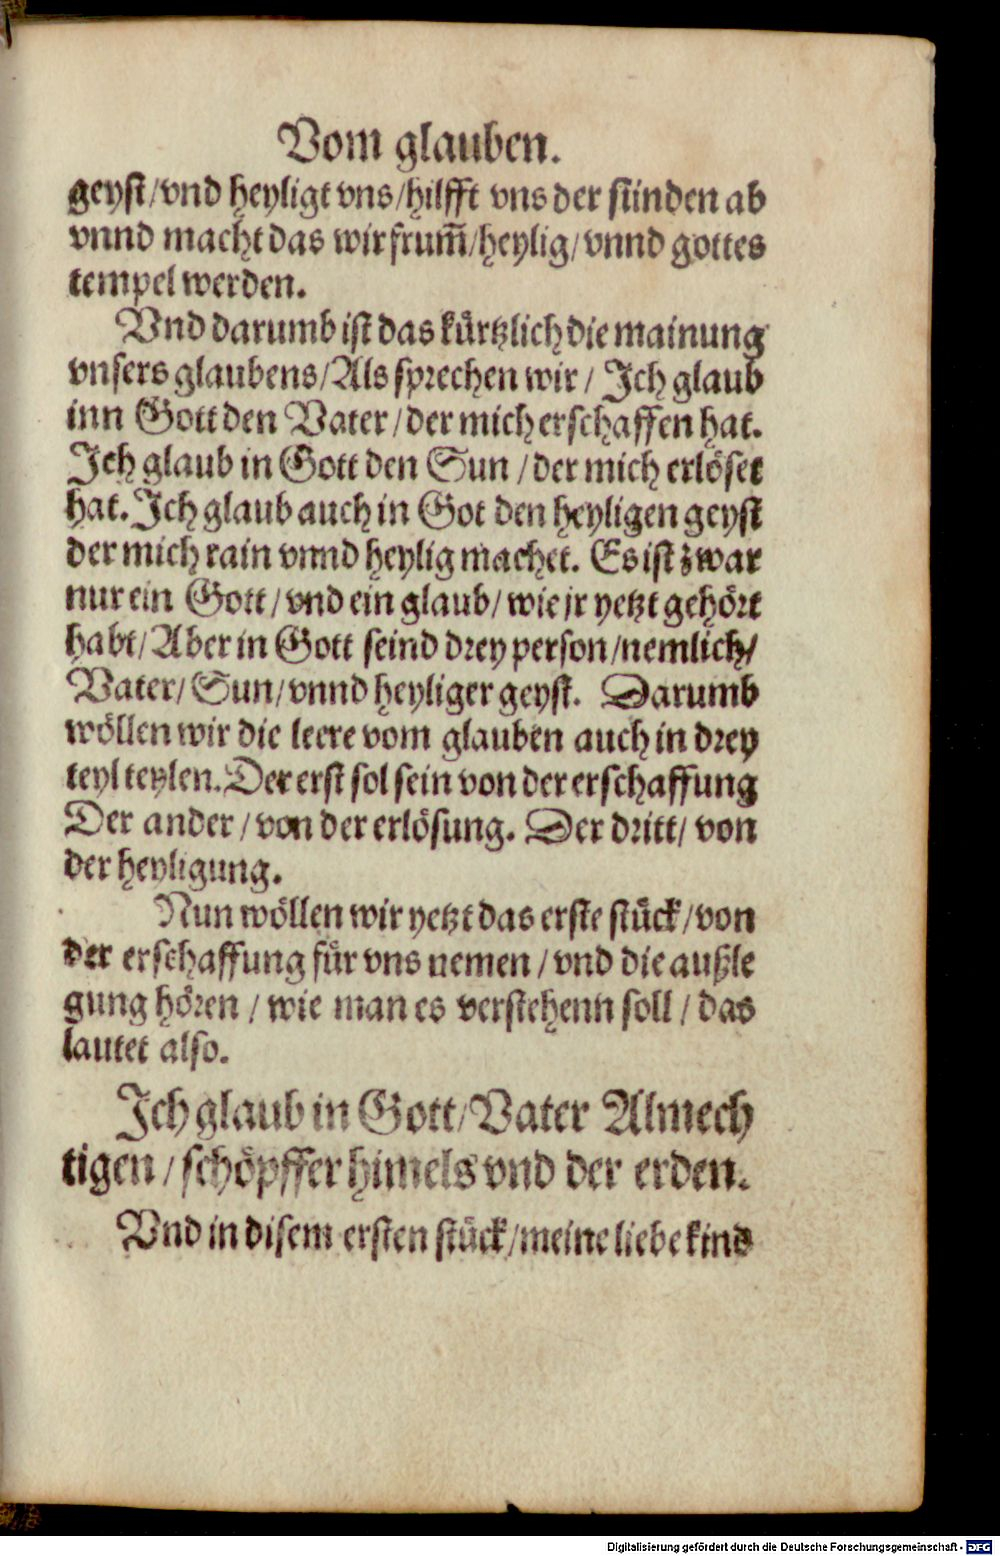 Vom glauben.
geyst/vnd heyligt vns/hilfft vns der sünden ab
vnnd macht das wir frum̃/heylig/vnnd gottes
tempel werden.
Vnd darumb ist das kürtzlich die mainung
vnsers glaubens/Als sprechen wir/ Ich glaub
inn Gott den Vater/der mich erschaffen hat.
Ich glaub in Gott den Sun/der mich erlöset
hat. Ich glaub auch in Got den heyligen geyst
der mich rain vnnd heylig machet. Es ist zwar
nur ein Gott/vnd ein glaub/wie jr yetzt gehört
habt/Aber in Gott seind drey person/nemlich/
Vater/Sun/vnnd heyliger geyst. Darumb
wöllen wir die leere vom glauben auch in drey
teyl teylen. Der erst sol sein von der erschaffung
Der ander/von der erlösung. Der dritt/von
der heyligung.
Nun wöllen wir yetzt das erste stück/von
der erschaffung für vns nemen/vnd die außle
gung hören/wie man es verstehenn soll/das
lautet also.
Ich glaub in Gott/Vater Almech
tigen/schöpffer himels vnd der erden.
Vnd in disem ersten stück/meine liebe kind
Digitalisierung gefördert durch die Deutsche Forschungsgemeinschaft - DFG